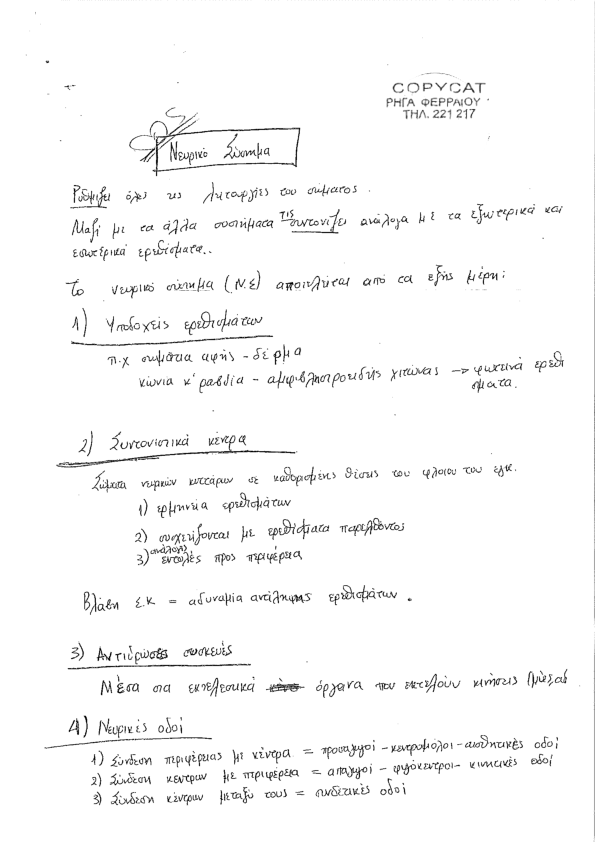 COPYCAT
ΡΗΓΑ ΦΕΡΡΑΙΟΥ
ΤΗΛ. 221 217
Νευρικό Σύστημα
Ρυθμίζει όλες τις λειτουργίες του σώματος.
Μαζί με τα άλλα συστήματα τις συντονίζει ανάλογα με τα εξωτερικά και
εσωτερικά ερεθίσματα..
Το νευρικό σύστημα (Ν.Σ) αποτελείται από τα εξής μέρη:
1) Υποδοχείς ερεθισμάτων
π.χ σωμάτια αφής - δέρμα
κώνια κ' ραβδία - αμφιβληστροειδής χιτώνας → φωτεινά ερεθί
σματα.
2) Συντονιστικά κέντρα
Σώματα νευρικών κυττάρων σε καθορισμένης θέσεις του φλοιου του εγκ.
1) ερμηνεία ερεθισμάτων
2) συσχετίζονται με ερεθίσματα παρελθόντος
3) ανάλογες εντολές προς περιφέρεια
Βλάβη Σ.Κ = αδυναμία αντίληψης ερεθισμάτων.
3) Αντιδρώσες συσκευές
Μέσα στα εκτελεστικά όργανα που εκτελούν κινήσεις
4) Νευρικές οδοί
1) Σύνδεση περιφέρειας με κέντρα = προσαγωγοί - κεντρομόλοι - αισθητικές οδοί
2) Σύνδεση κεντρων με περιφέρεια = απαγωγοί - φυγόκεντροι - κινητικές οδοί
3) Σύνδεση κέντρων μεταξύ τους = συνδετικές οδοί